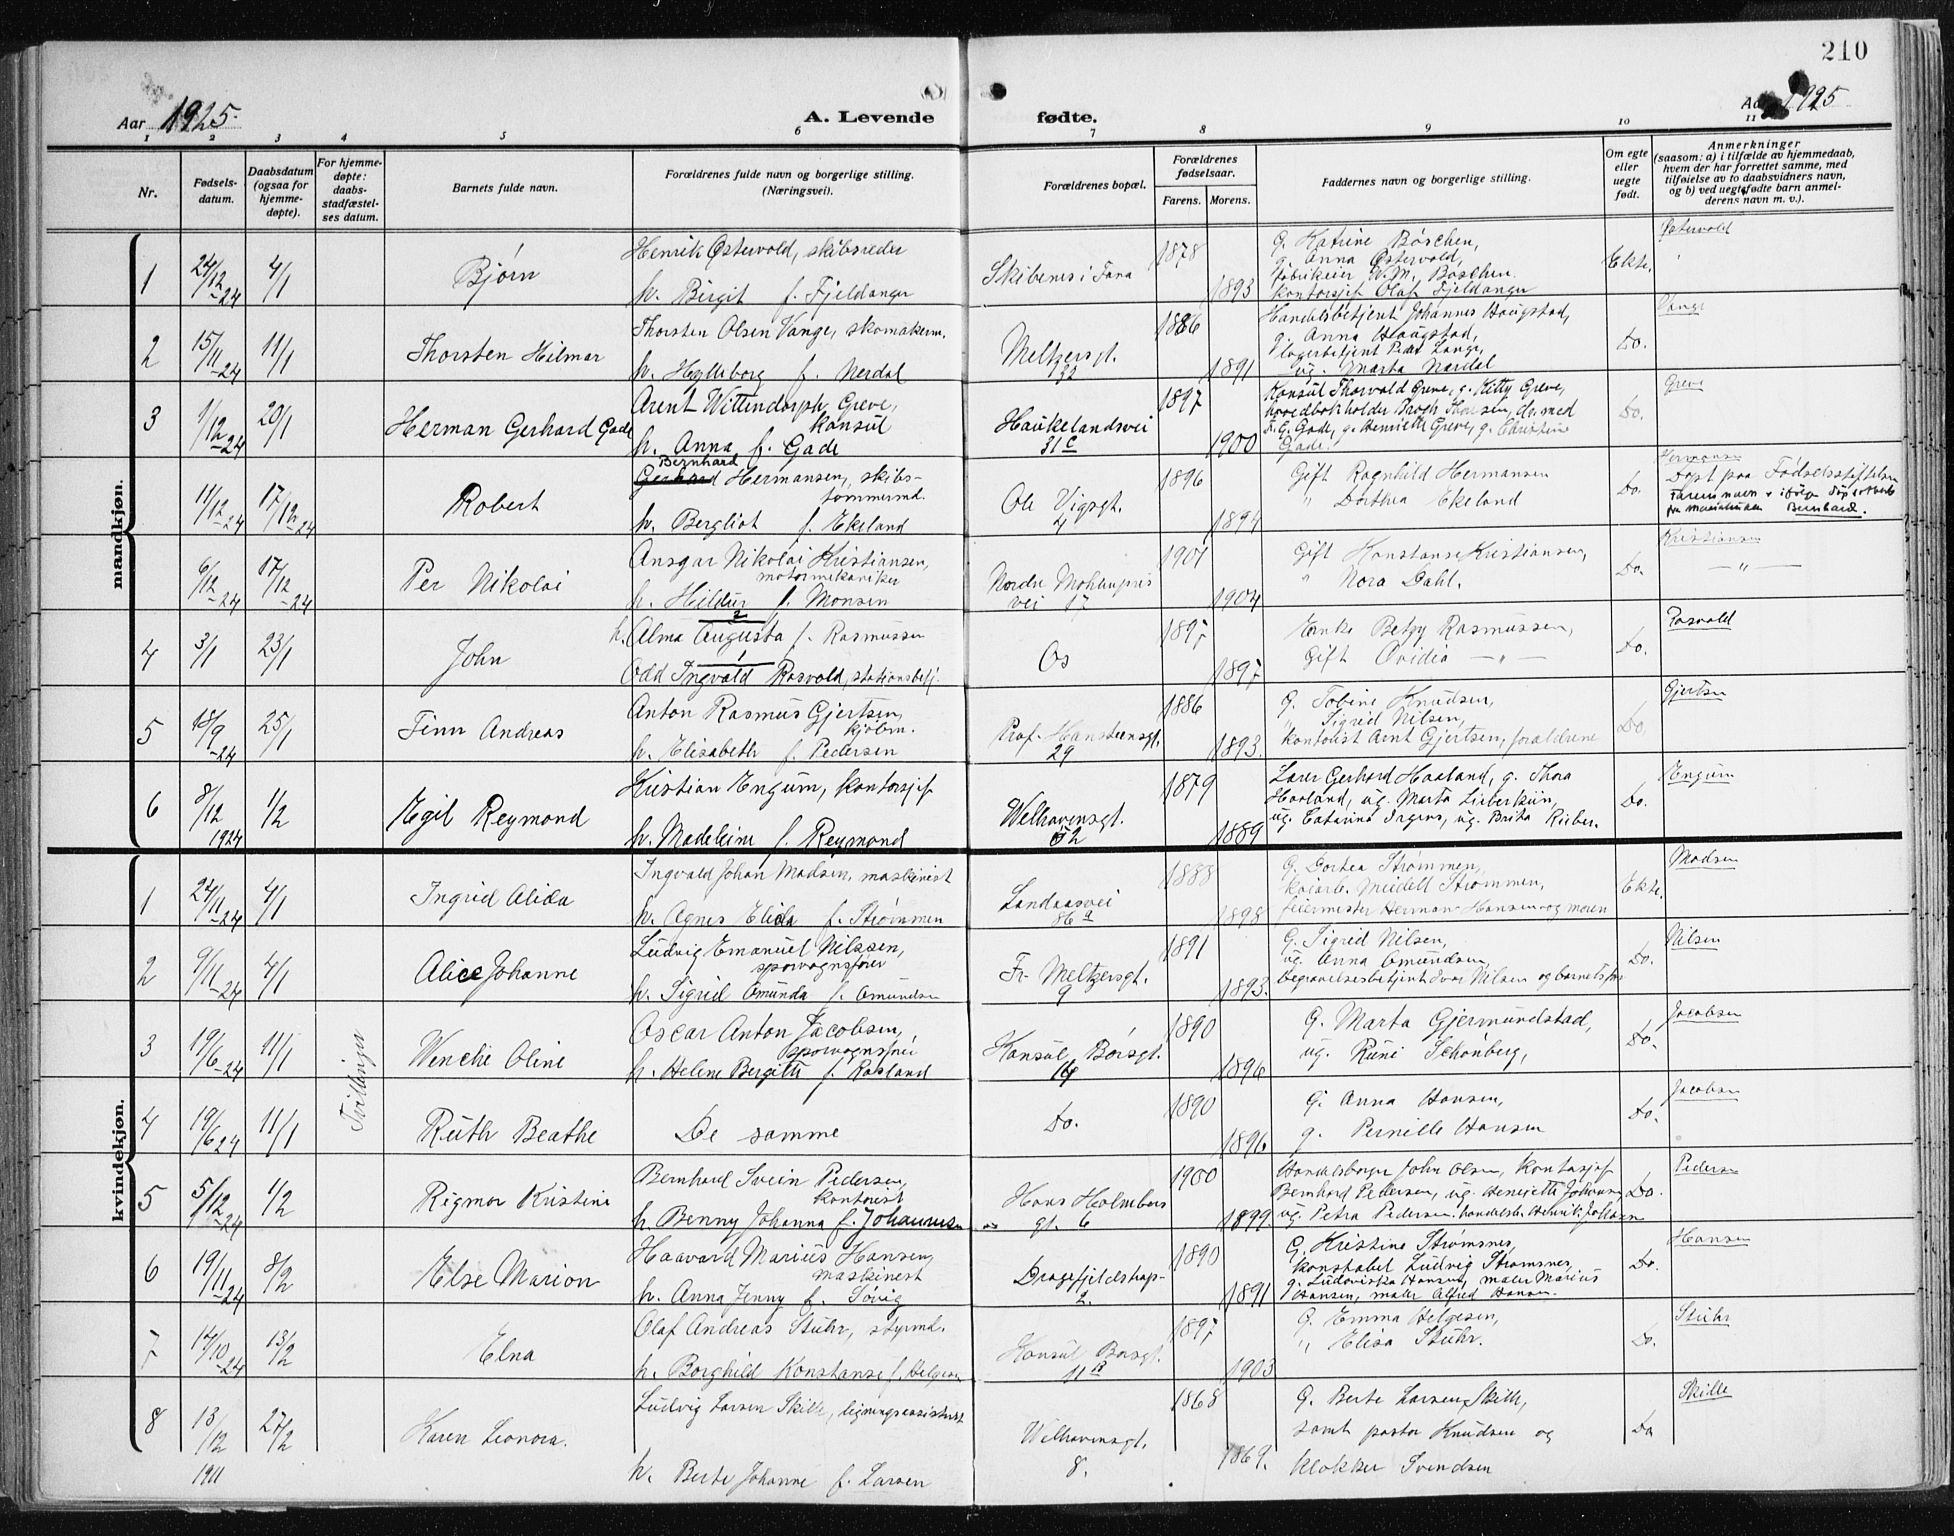 210
Aar 1925
A. Levende fødte.
Aar 1925
1 2 3 4 5 6 7 8 9 10 11
Nr.
Fødsels-
datum.
Daabsdatum
(ogsaa for
hjemme-
døpte).
For hjemme-
døpte:
daabs-
stadfæstel-
ses datum.
Barnets fulde navn.
Forældrenes fulde navn og borgerlige stilling.
(Næringsvei).
Forældrenes bopæl.
Forældrenes
fødselsaar.
Farens. Morens.
Faddernes navn og borgerlige stilling.
Om egte
eller
uegte
født.
Anmerkninger
(saasom: a) i tilfælde av hjemmedaab,
hvem der har forrettet samme, med
tilføielse av to daabsvidners navn,
og b) ved uegtefødte barn anmel-
derens navn m. v.).
mandkjøn.
1 24/12-24 4/1 Bjørn
Henrik Østervold, skibsreder
h. Birgit f. Fjeldanger
Skibenes i Fana
1878 1893
G. Katrine Böschen,
g. Anna Østervold,
fabrikeier W. M. Böschen.
kontorsjef Olaf Fjeldanger
Ekte.
Østervold
2 15/11-24 11/1 Thorsten Hilmar
Thorsten Olsen Vange, skomakerm.
h. Hylleborg f. Nerdal
Meltzersgt.
132
1886 1891
Handelsbetjent Johannes Haugstad,
g. Anna Haugstad,
lagerbetjent Peder Lange,
ug. Marta Nerdal
Do.
Vange
3 1/12-24 20/1 Herman Gerhard Gade
Arent Wittendorph Greve,
konsul
h. Anna f. Gade
Haukelandsvei
31 c
1897 1900
Konsul Thorvald Greve, g. Kitty Greve,
hovedbokholder Trogh Thorsen, dr. med
F. G. Gade, g. Henriette Greve, g. Christine
Gade.
Do.
Greve
11/12-24 17/12-24 Robert
Bernhard
Gerhard Hermansen, skibs-
tømmermd.
h. Bergliot f. Ekeland
Ole Vigsgt.
4
1896 1894
Gift Ragnhild Hermansen
" Dorthea Ekeland
Do.
Hermansen
Døpt paa Fødselsstiftelsen
Farens navn ifølge
Bernhard.
6/12-24 17/12-24 Per Nikolai
Ansgar Nikolai Kristiansen,
motormekaniker
h. Hildur f. Monsen
Nordre Mohlenpris
vei 17
1901 1904
Gift Konstanse Kristiansen,
" Nora Dahl.
Do.
Kristiansen
— " —
4 3/1 23/1 John
2
h. Alma Augusta f. Rasmussen
1
Odd Ingvald Rosvold, stationsbetj.
Os
1897 1897
Enke Betzy Rasmussen,
Gift Ovidia — " —
Do.
Rosvold
5 18/9-24 25/1 Finn Andreas
Anton Rasmus Gjertsen,
kjøbm.
h. Elisabeth f. Pedersen
Prof. Hansteensgt.
29
1886 1893.
G. Tobine Knudsen,
" Sigrid Nilsen,
kontorist Arnt Gjertsen, forældrene
Do.
Gjertsen
6 8/12 1924 1/2 Egil Reymond
Kristian Engum, kontorsjef
h. Madeleine f. Reymond
Welhavensgt.
52
1879 1889
Lærer Gerhard Haaland, g. Thora
Haaland, ug. Marta Lieberkün,
ug. Catarina Irgens, ug. Brita Rieber.
Do.
Engum
kvindekjøn.
1 24/11-24 4/1 Ingrid Alida
Ingvald Johan Madsen, maskinist
h. Agnes Elida f. Strømmen
Landaasvei
86 a
1888 1898
G. Dortea Strømmen,
koiarb. Meidell Strømmen,
feiermester Herman Hansen og moren
Ekte.
Madsen
2 9/11-24 4/1 Alice Johanne
Ludvig Emanuel Nilssen,
sporvognsfører
h. Sigrid Omunda f. Omundsen
Fr. Meltzersgt.
9
1891 1893.
G. Sigrid Nilsen,
ug. Anna Omundsen,
begravelsesbetjent Ivar Nilsen og barnets far
Do.
Nilsen
3 19/6-24 11/1 Wenche Oline
Tvillinger
Oscar Anton Jacobsen,
sporvognsfører
h. Helene Bergitte f. Rosland
Konsul Børsgt.
14
1890 1896
G. Marta Gjermundstad,
ug. Runi Schønberg,
Do.
Jacobsen
4 19/6 24 11/1 Ruth Beathe
De samme
Do.
1890 1896.
G. Anna Hansen,
g. Pernille Hansen
Do.
Jacobsen
5 5/12-24 1/2 Rigmor Kristine
Bernhard Svein Pedersen,
kontorist
h. Benny Johanna f. Johannesen
Hans Holmboes
gt. 6
1900 1899
Handelsborger John Olsen, kontorsjef
Bernhard Pedersen, ug. Henriette Johannesen
ug. Petra Pedersen, handelsb. Henrik Johansen
Do.
Pedersen
6 19/11-24 8/2 Else Marion
Haavard Marius Hansen,
maskinist
h. Anna Jenny f. Søvig
Dragefjeldstrap.
2.
1890 1891
G. Kristine Strømsnes,
konstabel Ludvig Strømsnes,
g. Ludoviska Hansen, maler Marius
Hansen, maler Alfred Hansen.
Do.
Hansen
7 17/10-24 13/2 Elna
Olaf Andreas Stuhr, styrmd.
h. Borghild Konstanse f. Helgesen
Konsul Børsgt.
11 B
1897 1903
G. Emma Helgesen,
" Elisa Stuhr.
Do.
Stuhr
8 13/12 1911 27/2 Karen Leonora.
Ludvig Larsen Skille, ligningsassistent
h. Berte Johanne f. Larsen
Welhavensgt.
8.
1868 1869.
G. Berte Larsen Skille,
samt pastor Knudsen og
klokker Svendsen
Do
Skille